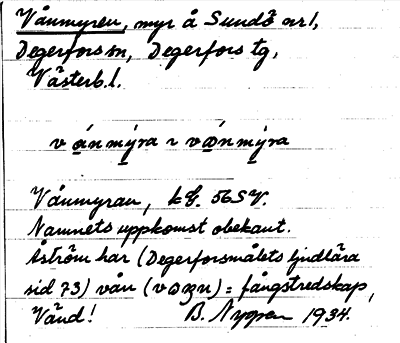 Vånmyren, myr å Sundö nr 1,
Degerfors sn, Degerfors tg,
Västerb. l.
v ǻnmy̱ra ~ vɷ́nmy̱ra
Vånmyran, kG. 56 SV.
Namnets uppkomst obekant.
Åström har (Degerforsmålets ljudlära
sid 73) vån = fångstredskap,
Vänd! B. Nygren 1934.